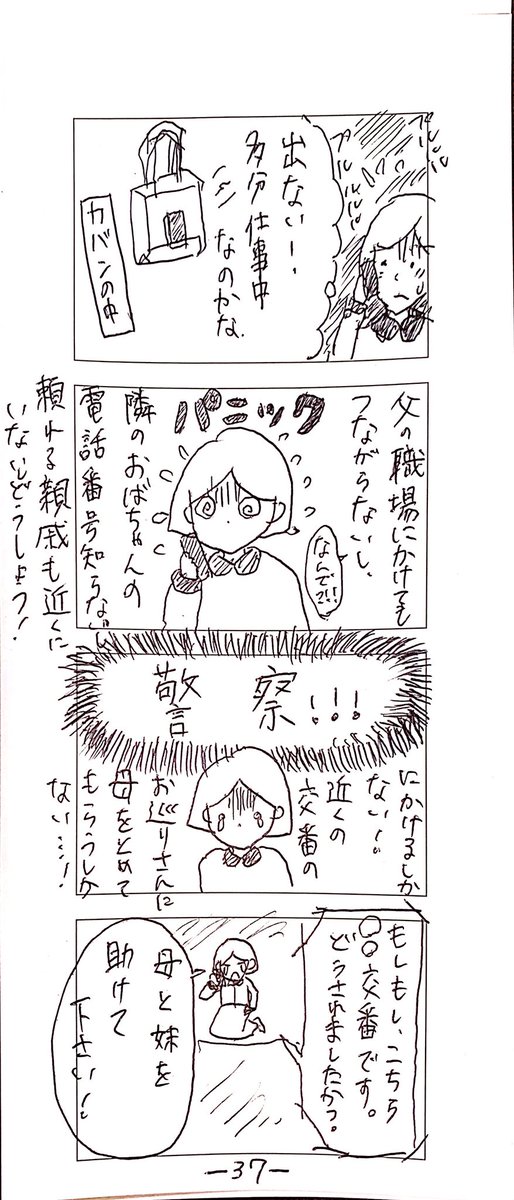 プルルル
プルルルル
出ない!
多分仕事中
なのかな
カバンの中
父の職場にかけても
つながらないし、
なんで?!!
パニック
隣のおばちゃんの
電話番号知らない
頼れる親戚も近くに
いないしどうしよう!
警察!!!
にかけるしか
ない!!
近くの
交番の
お巡りさんに
母をとめて
もらうしか
ない…!
もしもし、こちら
〇〇交番です。
どうされましたかっ。
母と妹を
助けて
下さい!
-37-